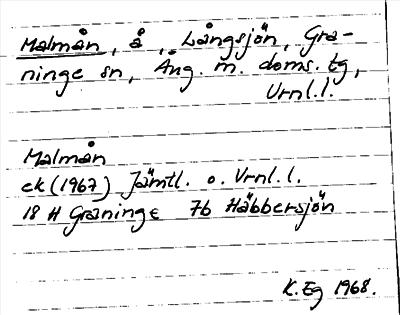 Malmån, å, Långsjön, Gra-
ninge sn, Äng. m. doms. tg,
Vrnl.l.
Malmån
ek (1967) Jämtl. o. Vrnl.l.
18 H Graninge 7b Häbbersjön
K. Eg 1968.